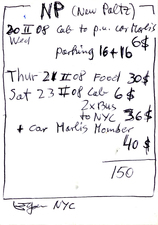 NP (New Paltz)
20 II 08 Cab to p.u. car Marlis
Wed 6$
parking 16+16
Thur 21 II 08 Food 30$
Sat 23 II 08 Cab 6$
2xBus
to NYC 36$
+ car Marlis Homber
40$
150
NYC